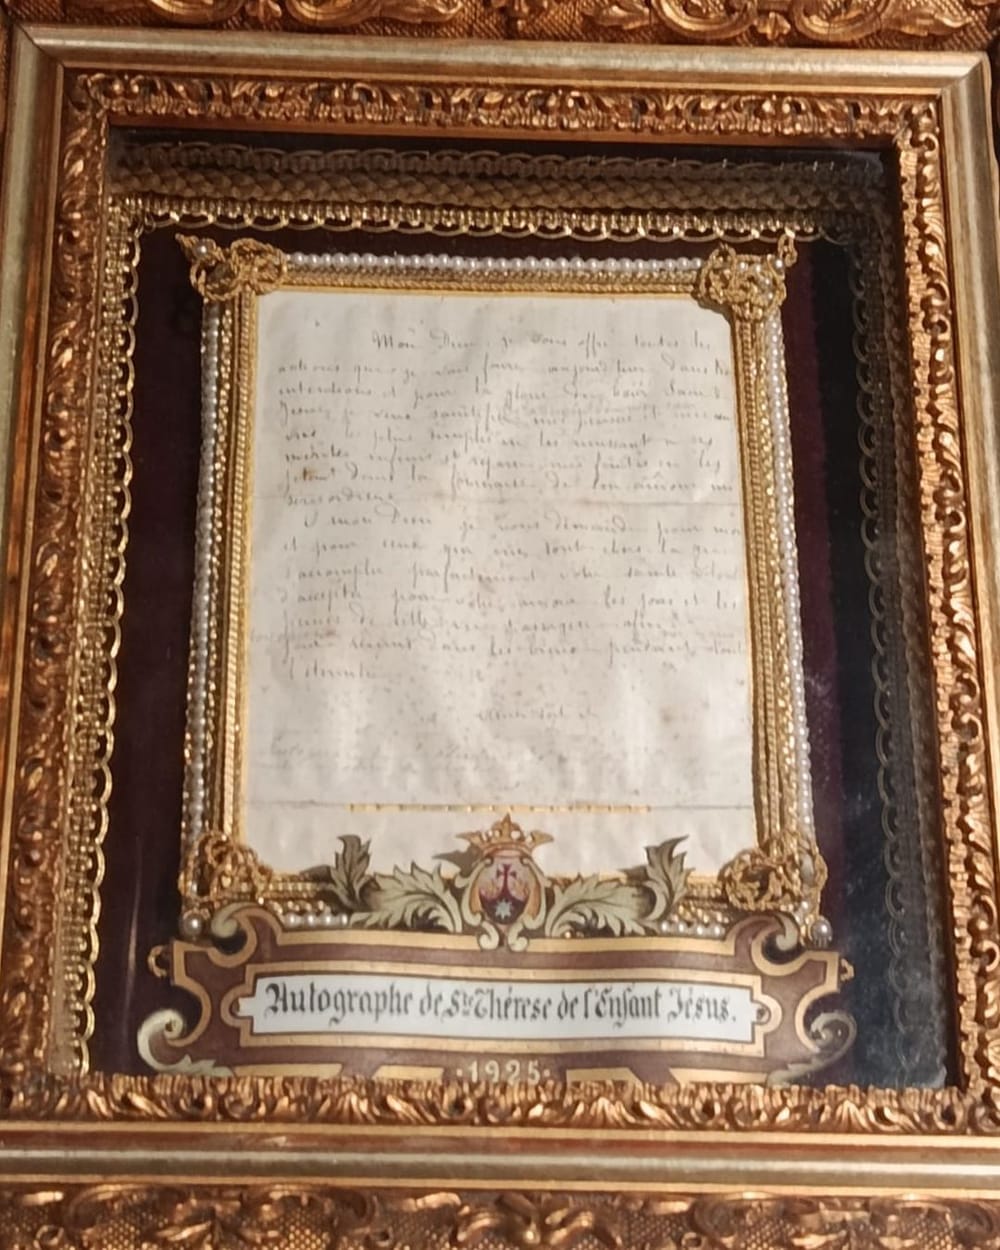 Mon Dieu, je vous offre toutes les
actions que je vais faire aujourd'hui dans les
intentions et pour la gloire du
je veux sanctifier
les plus simples en les unissant à ses
mérites infinis et réparer mes fautes en les
jetant dans la fournaise de son amour mi
séricordieux
O mon Dieu je vous demande pour moi
et pour ceux qui me sont chers la grâce
d'accomplir parfaitement votre sainte
d'accepter pour votre amour les joies et les
peines de cette vie passagère afin
réunis dans les Cieux pendant toute
l'éternité
Ainsi soit-il
Autographe de Ste Thérèse de l'Enfant Jésus.
·1925·